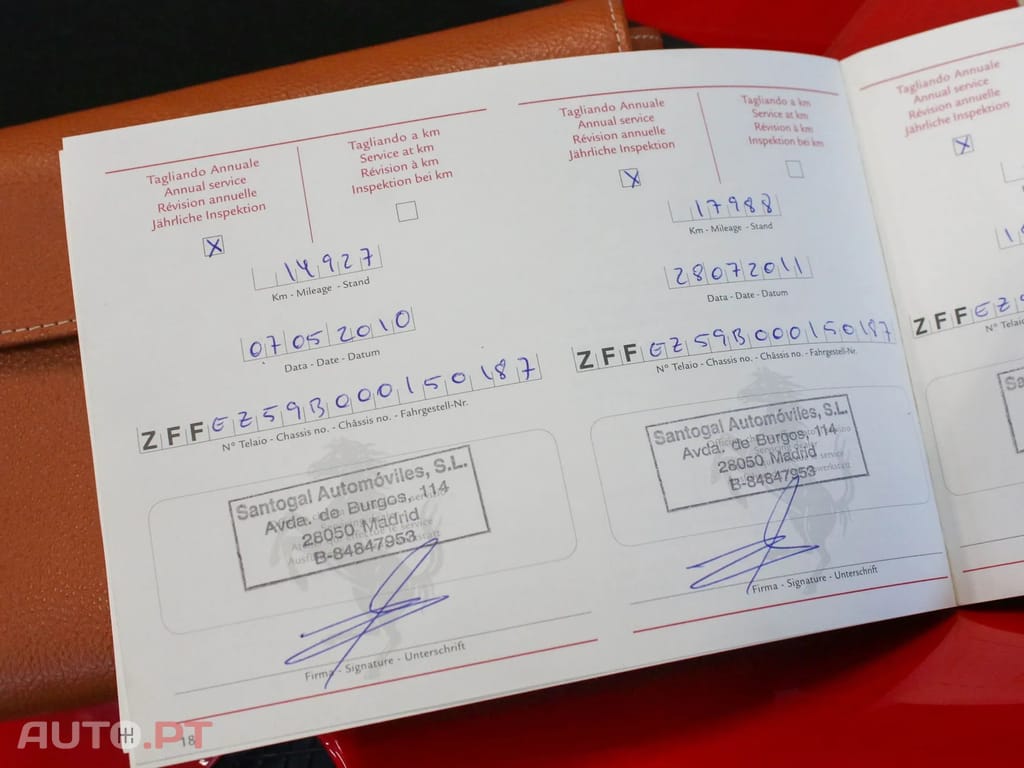 Tagliando Annuale
Annual service
Révision annuelle
Jährliche Inspektion
X
Tagliando a km
Service at km
Révision à km
Inspektion bei km
14927
Km - Mileage - Stand
07052010
Data - Date - Datum
ZFFEZ59B000150187
N° Telaio - Chassis no. - Châssis no. - Fahrgestell-Nr.
Santogal Automóviles, S.L.
Avda. de Burgos, 114
28050 Madrid
B-84847953
Firma - Signature - Unterschrift
18
Tagliando Annuale
Annual service
Révision annuelle
Jährliche Inspektion
X
Tagliando a km
Service at km
Révision à km
Inspektion bei km
17988
Km - Mileage - Stand
28072011
Data - Date - Datum
ZFFEZ59B000150187
N° Telaio - Chassis no. - Châssis no. - Fahrgestell-Nr.
Santogal Automóviles, S.L.
Avda. de Burgos, 114
28050 Madrid
B-84847953
Firma - Signature - Unterschrift
Tagliando Annuale
Annual service
Révision annuelle
Jährliche Inspektion
X
ZFFEZ
N° Telaio
AUTO.PT